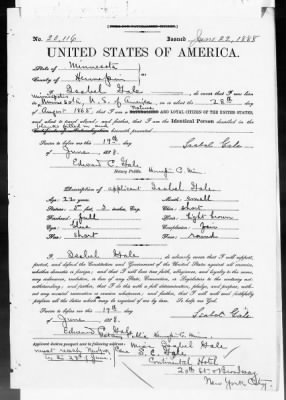 No. 20,116 Issued June 22, 1888
UNITED STATES OF AMERICA.
State of Minnesota
County of Hennepin
I, Isabel Gale, do swear that I was born
in Minnesota, U.S. of America, on or about the 28th day
of August 1865; that I am a native
AND LOYAL CITIZEN OF THE UNITED STATES,
and that I am the Identical Person described in the
Sworn to before me this 19th day
of June 1888.
Isabel Gale
Edward C. Gale
Notary Public
Description of applicant Isabel Gale
Age: 22 years Mouth: small
Stature: 5 feet, 3 inches, Eng. Chin: short
Forehead: full Hair: light brown
Eyes: blue Complexion: fair
Nose: short Face: round
I, Isabel Gale do solemnly swear that I will support,
protect, and defend the Constitution and Government of the United States against all enemies,
whether domestic or foreign; and that I will bear true faith, allegiance, and loyalty to the same,
any ordinance, resolution, or law of any State, Convention, or Legislature to the contrary not-
withstanding; and further, that I do this with a full determination, pledge, and purpose, with-
out any mental reservation or evasion whatsoever; and further, that I will well and faithfully
perform all the duties which may be required of me by law. So help me God.
Sworn to before me this 19th
day of June 1888.
Isabel Gale
Edward C. Gale
Notary Public
Applicant desires passport sent to following address:
Miss Isabel Gale
must reach New York Care S. C. Gale
by the 23d June Continental Hotel
20th St & Broadway
New York City.